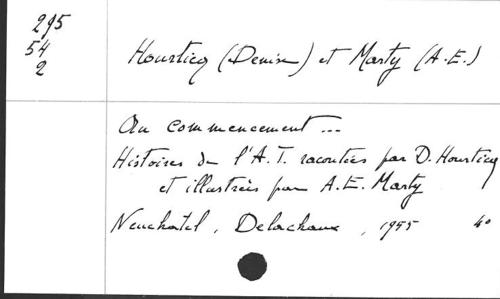 295
54
2
Hourticq (Denise) et Marty (A.E.)
Au commencement ...
Histoires de l'A.T. racontées par D. Hourticq
et illustrées par A.E. Marty
Neuchatel, Delachaux, 1955 4º